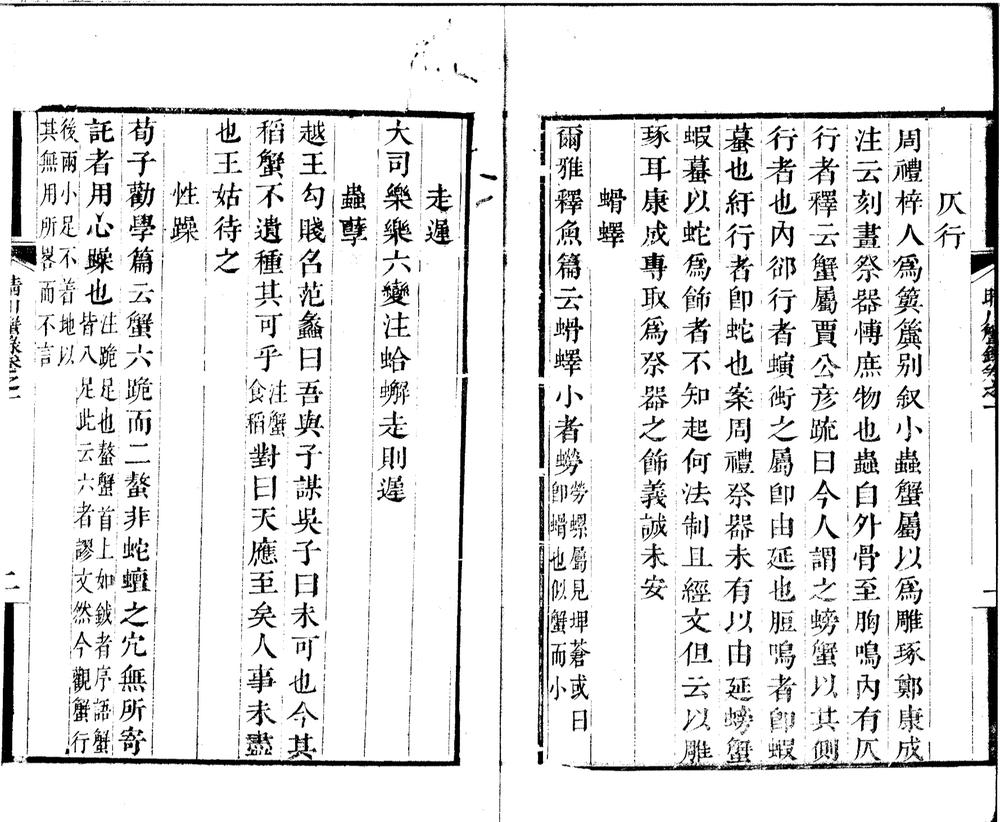 仄行
周禮梓人爲簨簴别叙小蟲蟹屬以爲雕琢鄭康成
注云刻畫祭器博庶物也蟲自外骨至胸鳴内有仄
行者釋云蟹屬賈公彦䟽曰今人謂之螃蟹以其側
行者也内郤行者螾衍之屬卽由延也脰鳴者卽蝦
蟇也紆行者卽蛇也案周禮祭器未有以由延螃蟹
蝦蟇以蛇爲飾者不知起何法制且經文但云以雕
琢耳康成專取爲祭器之飾義誠未安
蜎蠌
爾雅釋魚篇云蜎蠌小者蟧勞螺屬見埤蒼或曰卽蜎也似蟹而小
走遲
大司樂樂六變注蛤蠏走則遲
蟲孽
越王勾踐名范蠡曰吾與子謀吳子曰未可也今其
稻蟹不遺種其可乎注蟹食稻對曰天應至矣人事未盡
也王姑待之
性躁
荀子勸學篇云蟹六跪而二螯非蛇蟺之穴無所寄
託者用心躁也注跪足也螯蟹首上如鉞者序語蟹皆八足此云六者謬文然今觀蟹行
後兩小足不着地以其無用所畧而不言
蟹錄卷之一
二